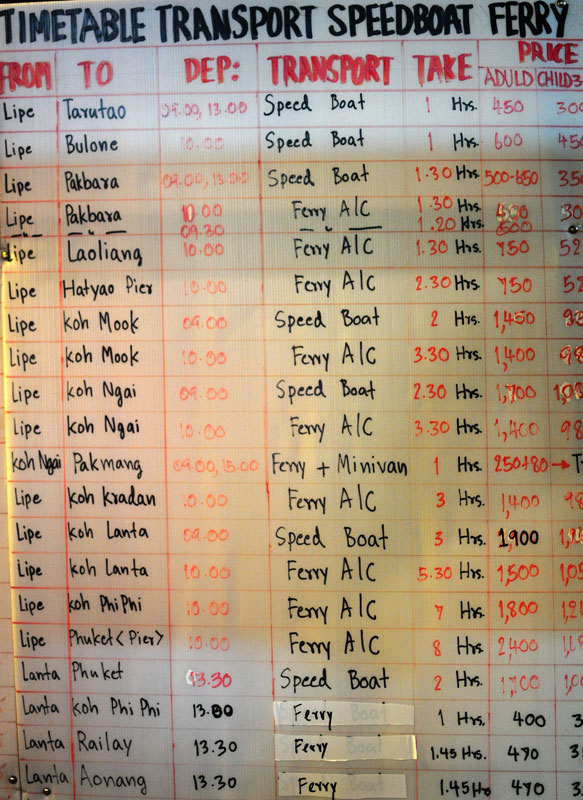 TIMETABLE TRANSPORT SPEEDBOAT FERRY
FROM TO DEP: TRANSPORT TAKE PRICE
ADULD CHILD
Lipe Tarutao 09.00, 13.00 Speed Boat 1 Hrs. 450
Lipe Bulone 10.00 Speed Boat 1 Hrs. 600
Lipe Pakbara 09.00, 13.00 Speed Boat 1.30 Hrs. 500-650
Lipe Pakbara 10.00 Ferry A/C 1.30 Hrs.
09.30 1.20 Hrs. 500
Lipe Laoliang 10.00 Ferry A/C 1.30 Hrs. 750
Lipe Hatyao Pier 10.00 Ferry A/C 2.30 Hrs. 750
Lipe Koh Mook 09.00 Speed Boat 2 Hrs. 1,450
Lipe Koh Mook 10.00 Ferry A/C 3.30 Hrs. 1,400
Lipe Koh Ngai 09.00 Speed Boat 2.30 Hrs. 1,700
Lipe Koh Ngai 10.00 Ferry A/C 3.30 Hrs. 1,400
Koh Ngai Pakmang 09.00, 13.00 Ferry + Minivan 1 Hrs. 250+80 → T
Lipe Koh Kradan 10.00 Ferry A/C 3 Hrs. 1,400
Lipe Koh Lanta 09.00 Speed Boat 3 Hrs. 1,900
Lipe Koh Lanta 10.00 Ferry A/C 5.30 Hrs. 1,500
Lipe Koh Phi Phi 10.00 Ferry A/C 7 Hrs. 1,800
Lipe Phuket <Pier> 10.00 Ferry A/C 8 Hrs. 2,400
Lanta Phuket 13.30 Speed Boat 2 Hrs. 1,700
Lanta Koh Phi Phi 13.30 Ferry 1 Hrs. 400
Lanta Railay 13.30 Ferry 1.45 Hrs. 470
Lanta Aonang 13.30 Ferry 1.45 Hrs 470